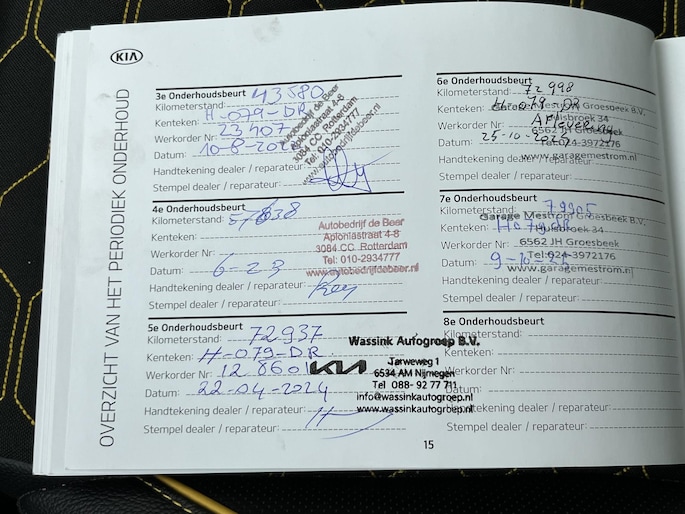 KIA
OVERZICHT VAN HET PERIODIEK ONDERHOUD
3e Onderhoudsbeurt
Kilometerstand: 43580
Kenteken: H-079-DR
Werkorder Nr: 23407
Datum: 10-8-202
Handtekening dealer / reparateur:
Stempel dealer / reparateur:
Autobedrijf de Beer
Aploniastraat 4-8
3084 CC Rotterdam
Tel: 010-2934777
www.autobedrijfdebeer.nl
4e Onderhoudsbeurt
Kilometerstand:
Kenteken:
Werkorder Nr:
Datum: 6-23
Handtekening dealer / reparateur:
Stempel dealer / reparateur:
Autobedrijf de Beer
Aploniastraat 4-8
3084 CC Rotterdam
Tel: 010-2934777
www.autobedrijfdebeer.nl
5e Onderhoudsbeurt
Kilometerstand: 72937
Kenteken: H-079-DR
Werkorder Nr: 128601
Datum: 22-04-2024
Handtekening dealer / reparateur:
Stempel dealer / reparateur:
Wassink Autogroep B.V.
KIA
Tarweweg 1
6534 AM Nijmegen
Tel 088- 92 77 711
info@wassinkautogroep.nl
www.wassinkautogroep.nl
6e Onderhoudsbeurt
Kilometerstand: 72998
Kenteken: H-079-DR
Werkorder Nr: Aflevering
Datum: 25-10-
Handtekening dealer / reparateur:
Stempel dealer / reparateur:
Garage Mestrom Groesbeek B.V.
34
6562 JH Groesbeek
Tel:024-3972176
www.garagemestrom.nl
7e Onderhoudsbeurt
Kilometerstand: 79905
Kenteken: H079DR
Werkorder Nr:
Datum: 9-10-25
Handtekening dealer / reparateur:
Stempel dealer / reparateur:
Garage Mestrom Groesbeek B.V.
34
6562 JH Groesbeek
Tel:024-3972176
www.garagemestrom.nl
8e Onderhoudsbeurt
Kilometerstand:
Kenteken:
Werkorder Nr:
Datum:
Handtekening dealer / reparateur:
Stempel dealer / reparateur:
15